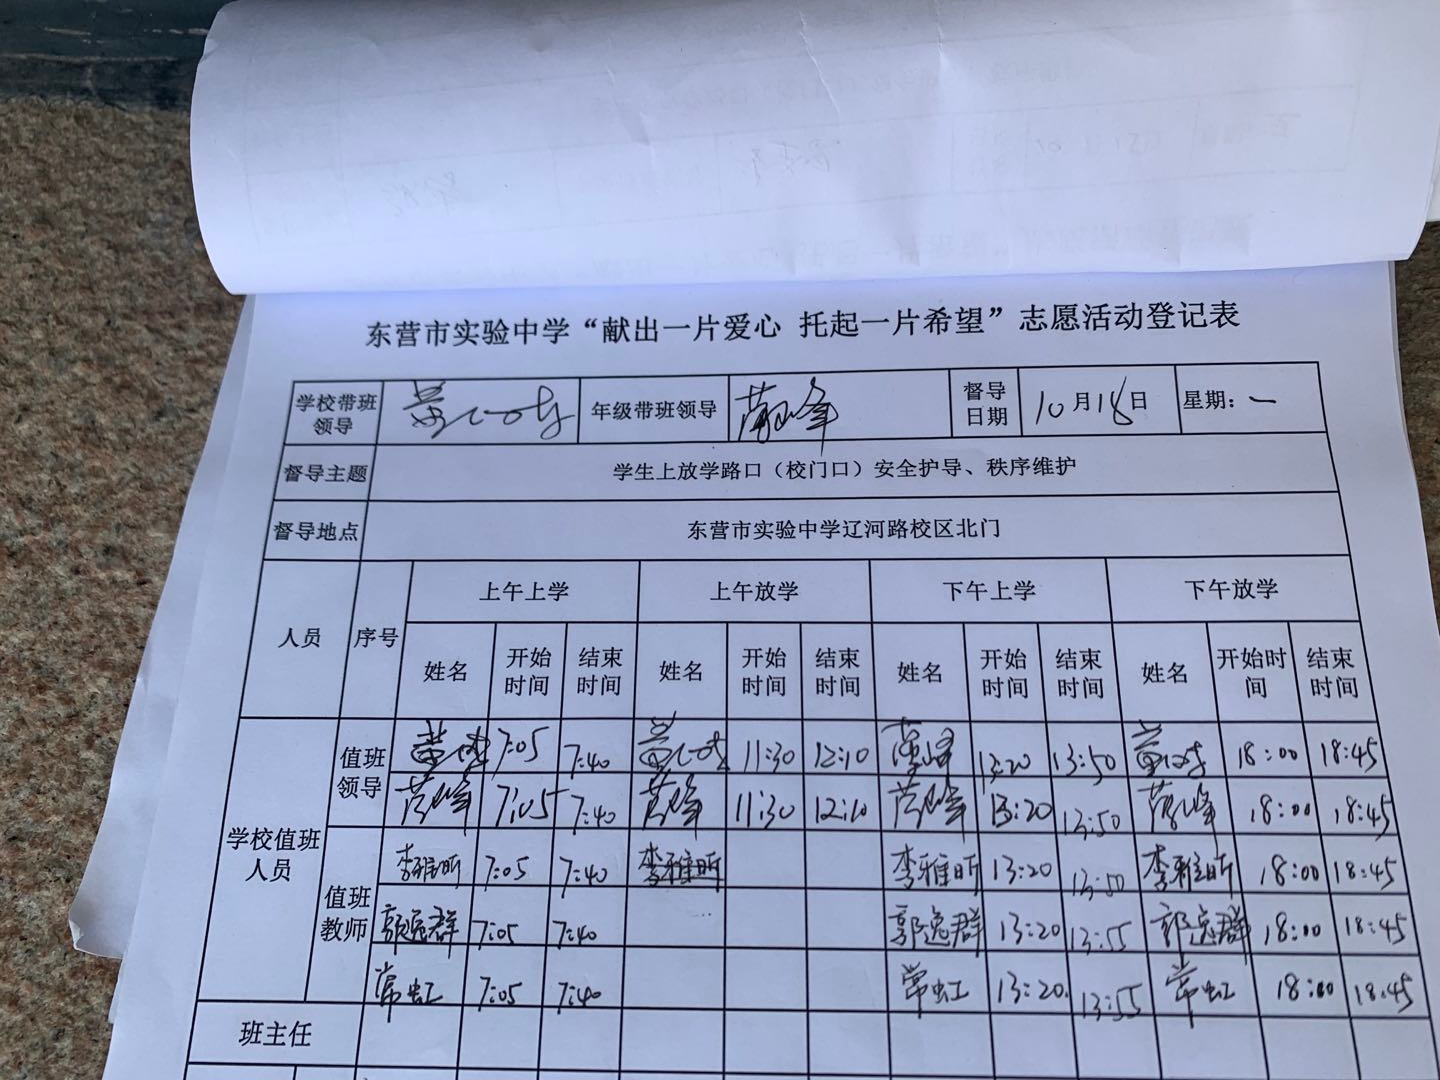 东营市实验中学“献出一片爱心 托起一片希望”志愿活动登记表
学校带班领导 年级带班领导 督导日期 10月18日 星期：一
督导主题 学生上放学路口（校门口）安全护导、秩序维护
督导地点 东营市实验中学辽河路校区北门
人员 序号 上午上学 上午放学 下午上学 下午放学
姓名 开始时间 结束时间 姓名 开始时间 结束时间 姓名 开始时间 结束时间 姓名 开始时间 结束时间
学校值班人员
值班领导 7:05 7:40 11:30 12:10 13:20 13:50 18:00 18:45
7:05 7:40 11:30 12:10 13:20 13:50 18:00 18:45
值班教师 李雅昕 7:05 7:40 李雅昕 李雅昕 13:20 13:50 李雅昕 18:00 18:45
郭逸群 7:05 7:40 郭逸群 13:20 13:55 郭逸群 18:00 18:45
常虹 7:05 7:40 常虹 13:20. 13:55 常虹 18:00 18:45
班主任